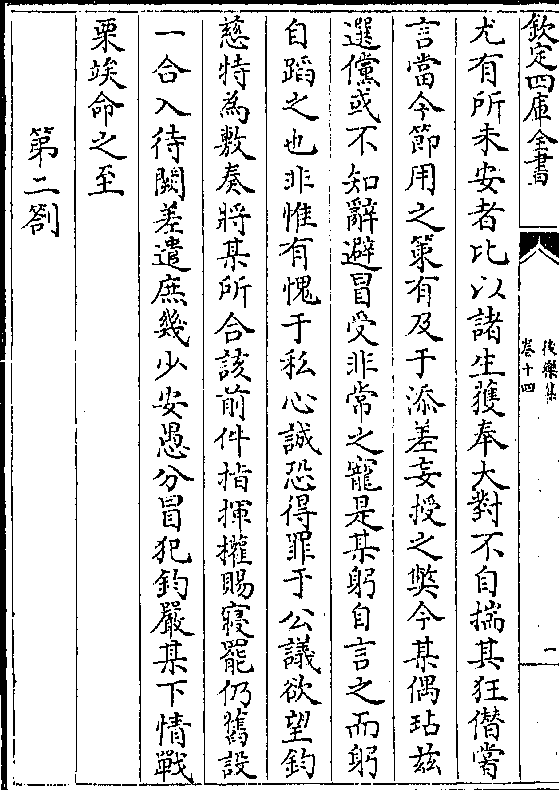 欽定四庫全書
後樂集
卷十四
一
尤有所未安者比以諸生獲奉大對不自揣其狂僭嘗
言當今節用之策有及于添差妄授之弊今某偶玷兹
選儻或不知辭避冒受非常之寵是某躬自言之而躬
自蹈之也非惟有愧于私心誠恐得罪于公議欲望鈞
慈特為敷奏將某所合該前件指揮擢賜寢罷仍舊設
一合入待闕差遣庶幾少安愚分冒犯鈞嚴某下情戰
栗竢命之至
第二劄